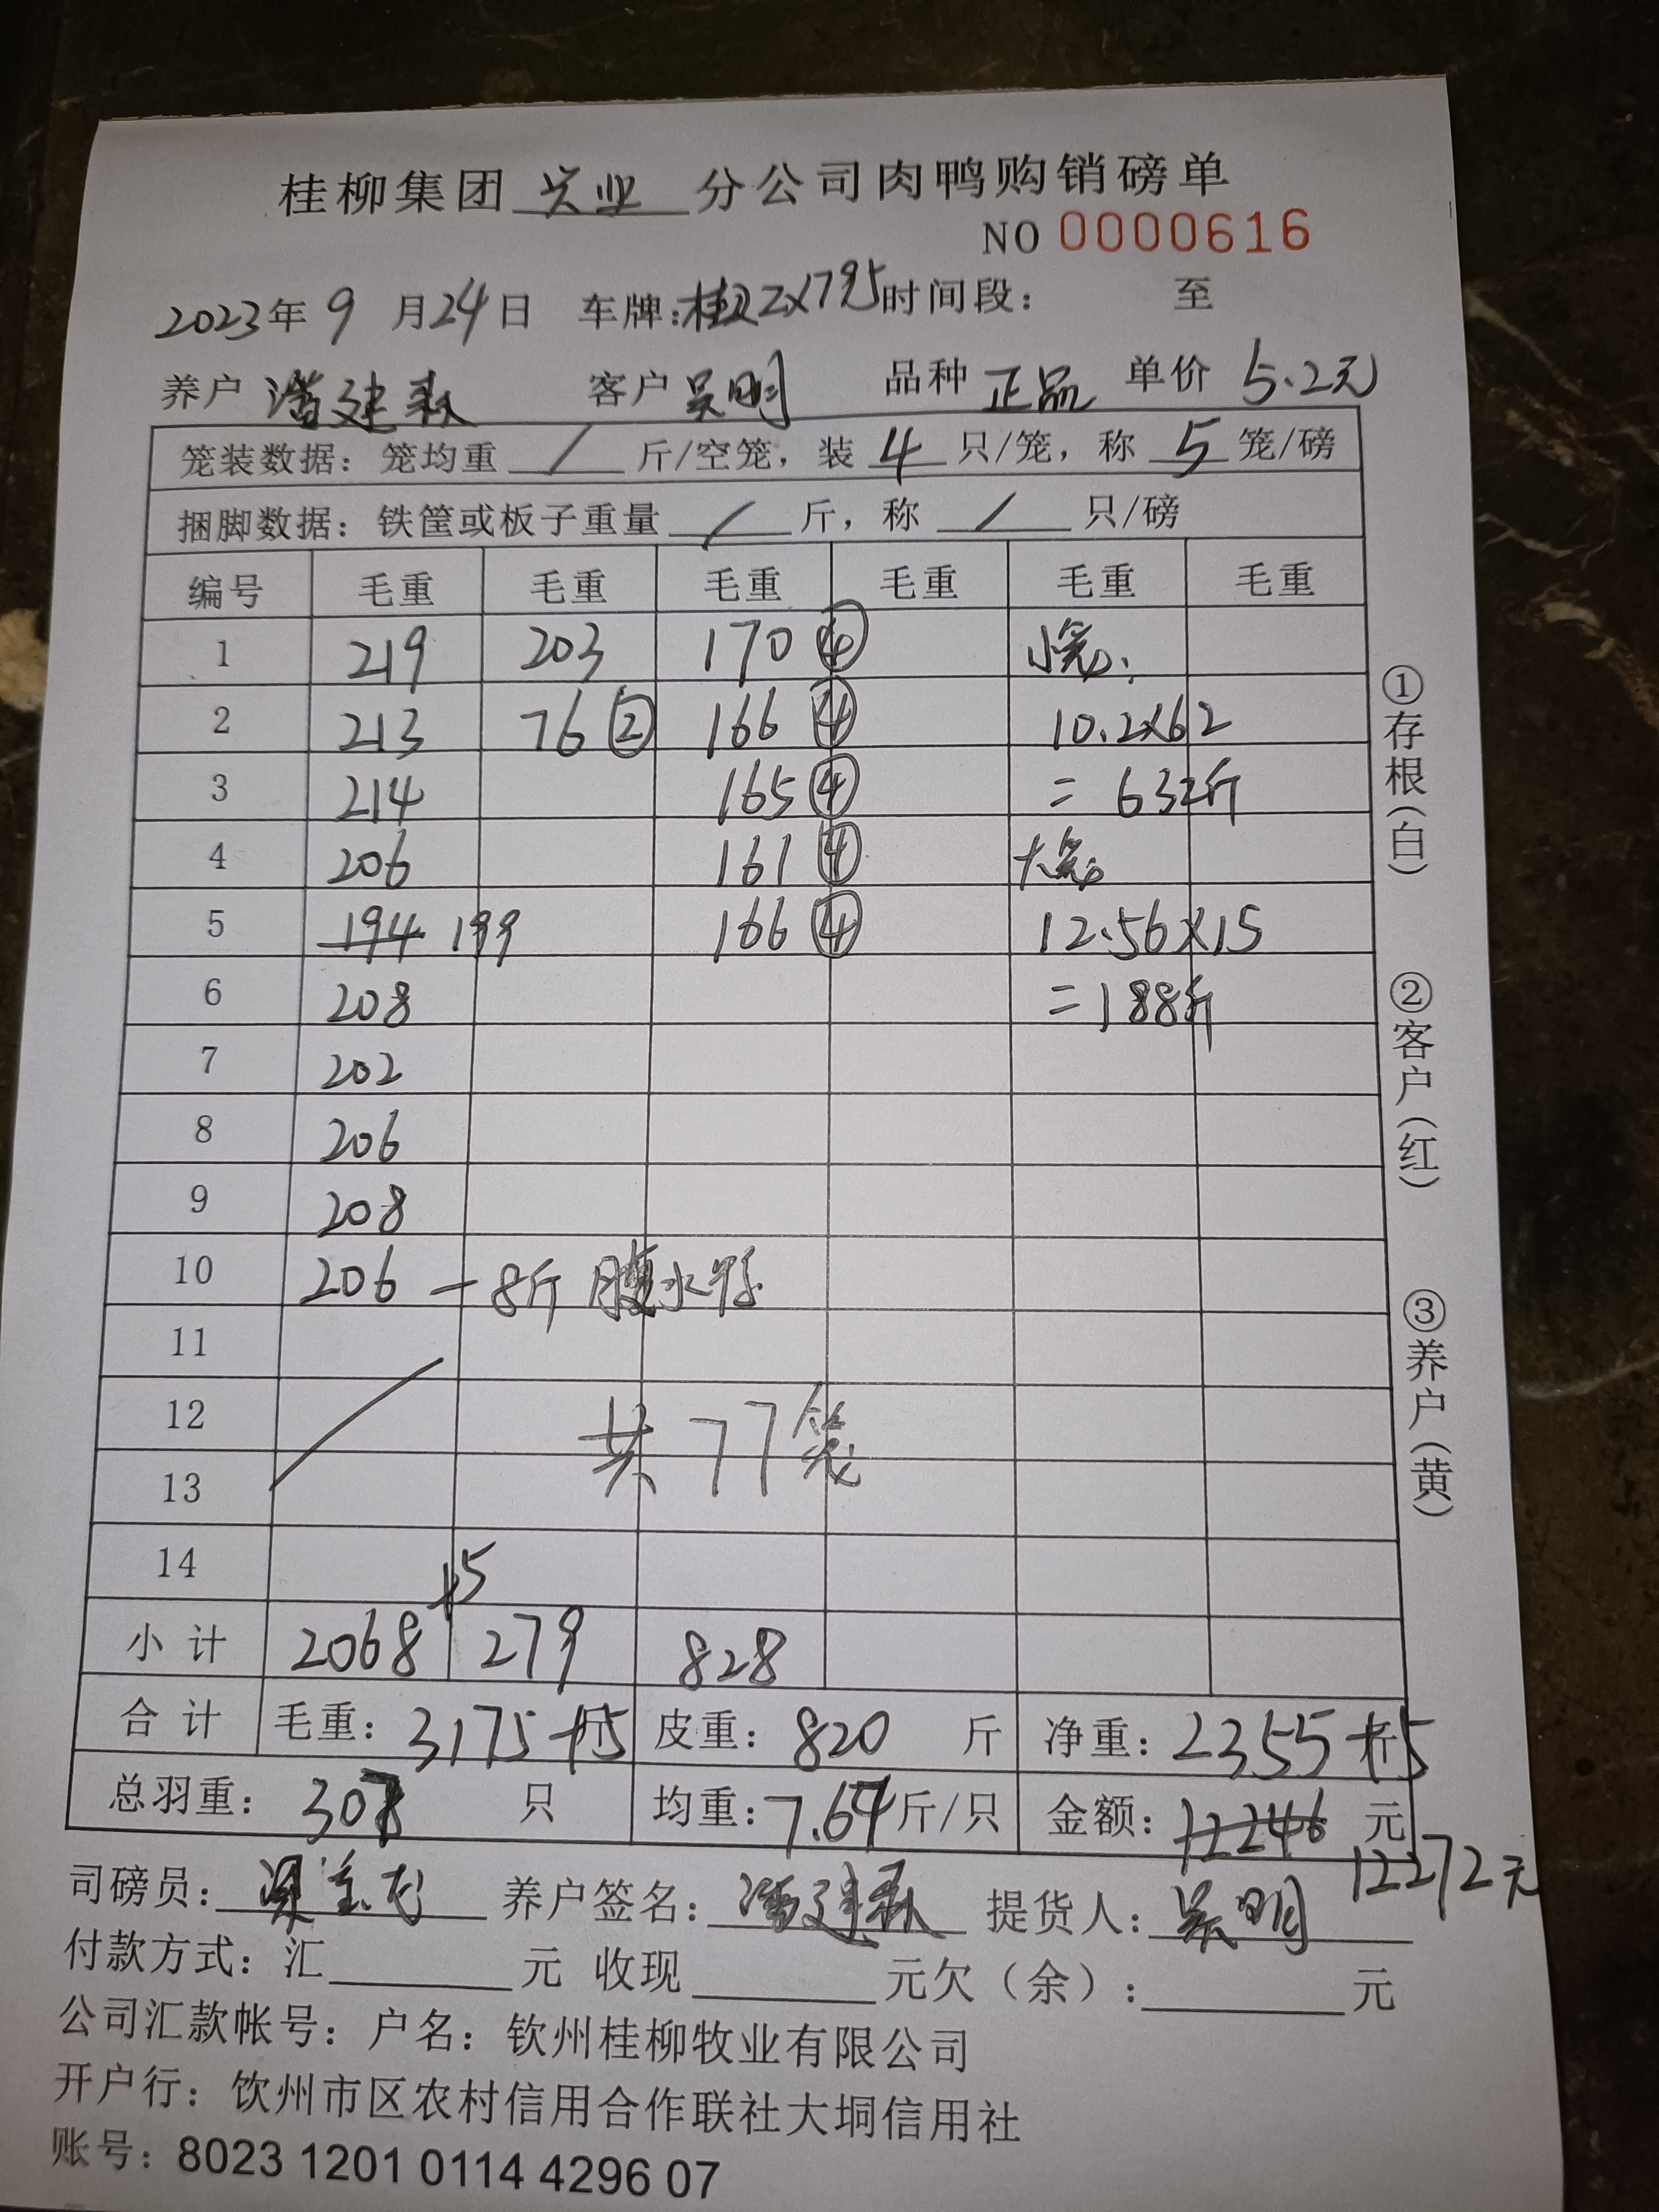 桂柳集团 兴业 分公司肉鸭购销磅单
NO 0000616
2023年 9 月 24 日 车牌: 时间段: 至
养户 潘建 客户 吴明 品种 正品 单价 5.2元
笼装数据: 笼均重 / 斤/空笼, 装 4 只/笼, 称 5 笼/磅
捆脚数据: 铁筐或板子重量 / 斤, 称 / 只/磅
编号 毛重 毛重 毛重 毛重 毛重 毛重
1 219 203 170 ④ 小笼:
2 213 76 ② 166 ④ 10.2×62
3 214 165 ④ = 632斤
4 206 161 ④ 大笼
5 194 199 166 ④ 12.56×15
6 208 =188斤
7 202
8 206
9 208
10 206 -8斤 腹水鸭
11
12 共77笼
13
14
+5
小计 2068 279 828
合计 毛重: 3175+5 斤 皮重: 820 斤 净重: 2355+5 斤
总羽重: 308 只 均重: 7.64 斤/只 金额: 12246 元
12272元
司磅员: 养户签名: 潘建 提货人: 吴明
付款方式: 汇 元 收现 元欠(余): 元
公司汇款帐号: 户名: 钦州桂柳牧业有限公司
开户行: 钦州市区农村信用合作联社大垌信用社
账号: 8023 1201 0114 4296 07
①存根(白)
②客户(红)
③养户(黄)